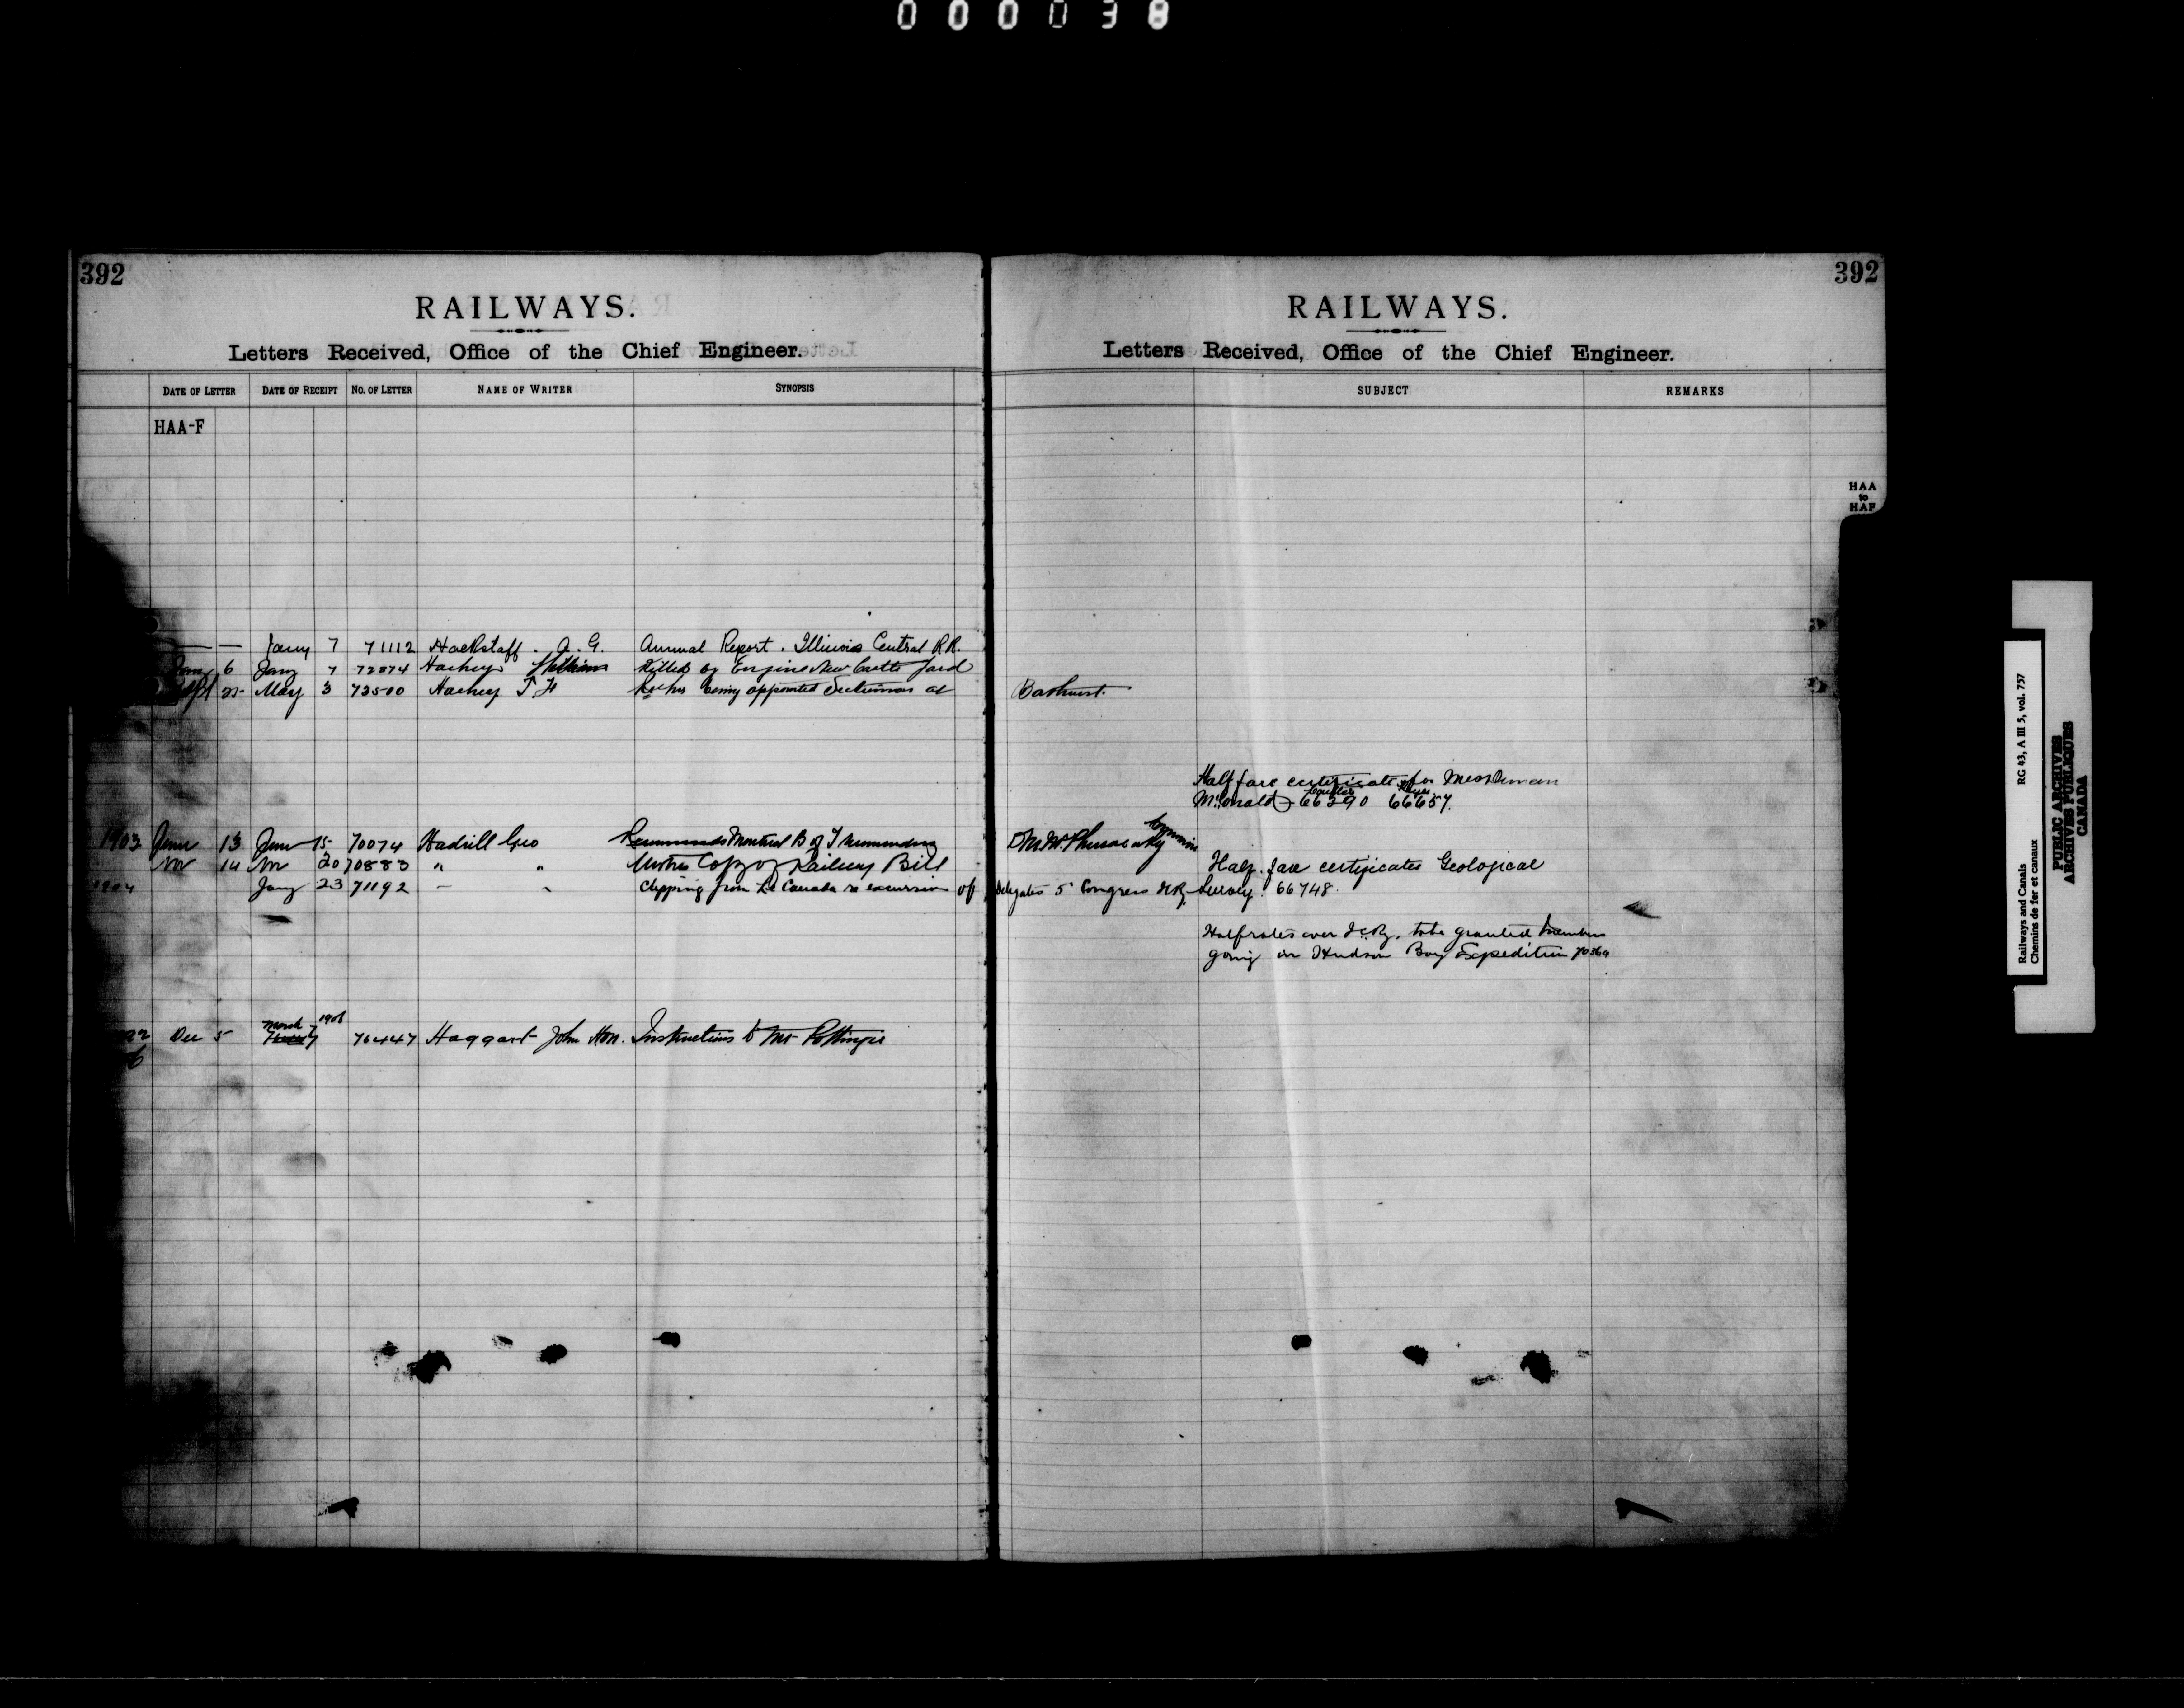 000038
392
RAILWAYS.
Letters Received, Office of the Chief Engineer.
DATE OF LETTER DATE OF RECEIPT NO. OF LETTER NAME OF WRITER SYNOPSIS
HAA-F
— — Jany 7 71112 Hackstaff. A. G. Annual Report. Illinois Central R.R.
Jany 6 Jany 7 72874 Hachey Killed by Engine New Castle Yard
Sept 25 May 3 73500 Hachey J H being appointed Sectionman at
1903 June 13 June 15 70074 Hadrill Geo Montreal B of T
Nov 14 Nov 20 70883 " " Copy of Railway Bill
1904 Jany 23 71192 — " Clipping from La Canada re excursion of
Dec 5 March 7 1906 76447 Haggart John Hon. Instructions to Mr Pottinger
392
RAILWAYS.
Letters Received, Office of the Chief Engineer.
SUBJECT REMARKS
HAA
to
HAF
Bathurst.
Half fare certificates for
McDonald 66390 66657.
Half fare certificates Geological
delegates 5 Congress Survey. 66748.
Half rates over I.C.Ry. to be granted members
going on Hudson Bay Expedition
Railways and Canals RG 43, A III 5, vol. 757
Chemins de fer et canaux
PUBLIC ARCHIVES
ARCHIVES PUBLIQUES
CANADA